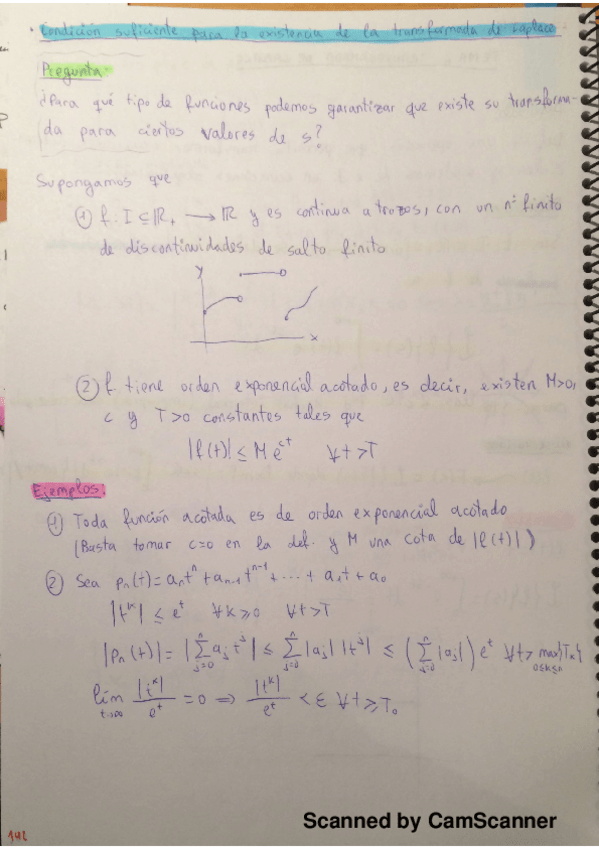 · Condición suficiente para la existencia de la transformada de Laplace
Pregunta:
¿Para qué tipo de funciones podemos garantizar que existe su transforma-
da para ciertos valores de s?
Supongamos que
① f: I ⊆ ℝ₊ → ℝ y es continua a trozos, con un nº finito
de discontinuidades de salto finito
y
x
② f tiene orden exponencial acotado, es decir, existen M>0,
c y T>0 constantes tales que
|f(t)| ≤ M e^{ct} ∀t>T
Ejemplos:
① Toda función acotada es de orden exponencial acotado
(Basta tomar c=0 en la def. y M una cota de |f(t)|)
② Sea pₙ(t)=aₙtⁿ+aₙ₋₁tⁿ⁻¹+...+a₁t+a₀
|t^k| ≤ e^t ∀k≥0 ∀t>T
|pₙ(t)| = |∑_{j=0}^{n} a_j t^j| ≤ ∑_{j=0}^{n} |a_j| |t^j| ≤ (∑_{j=0}^{n} |a_j|) e^t ∀t> max{T_k} 0≤k≤n
lím_{t→∞} |t^k|/e^t = 0 ⇒ |t^k|/e^t < ε ∀t≥T₀
Scanned by CamScanner